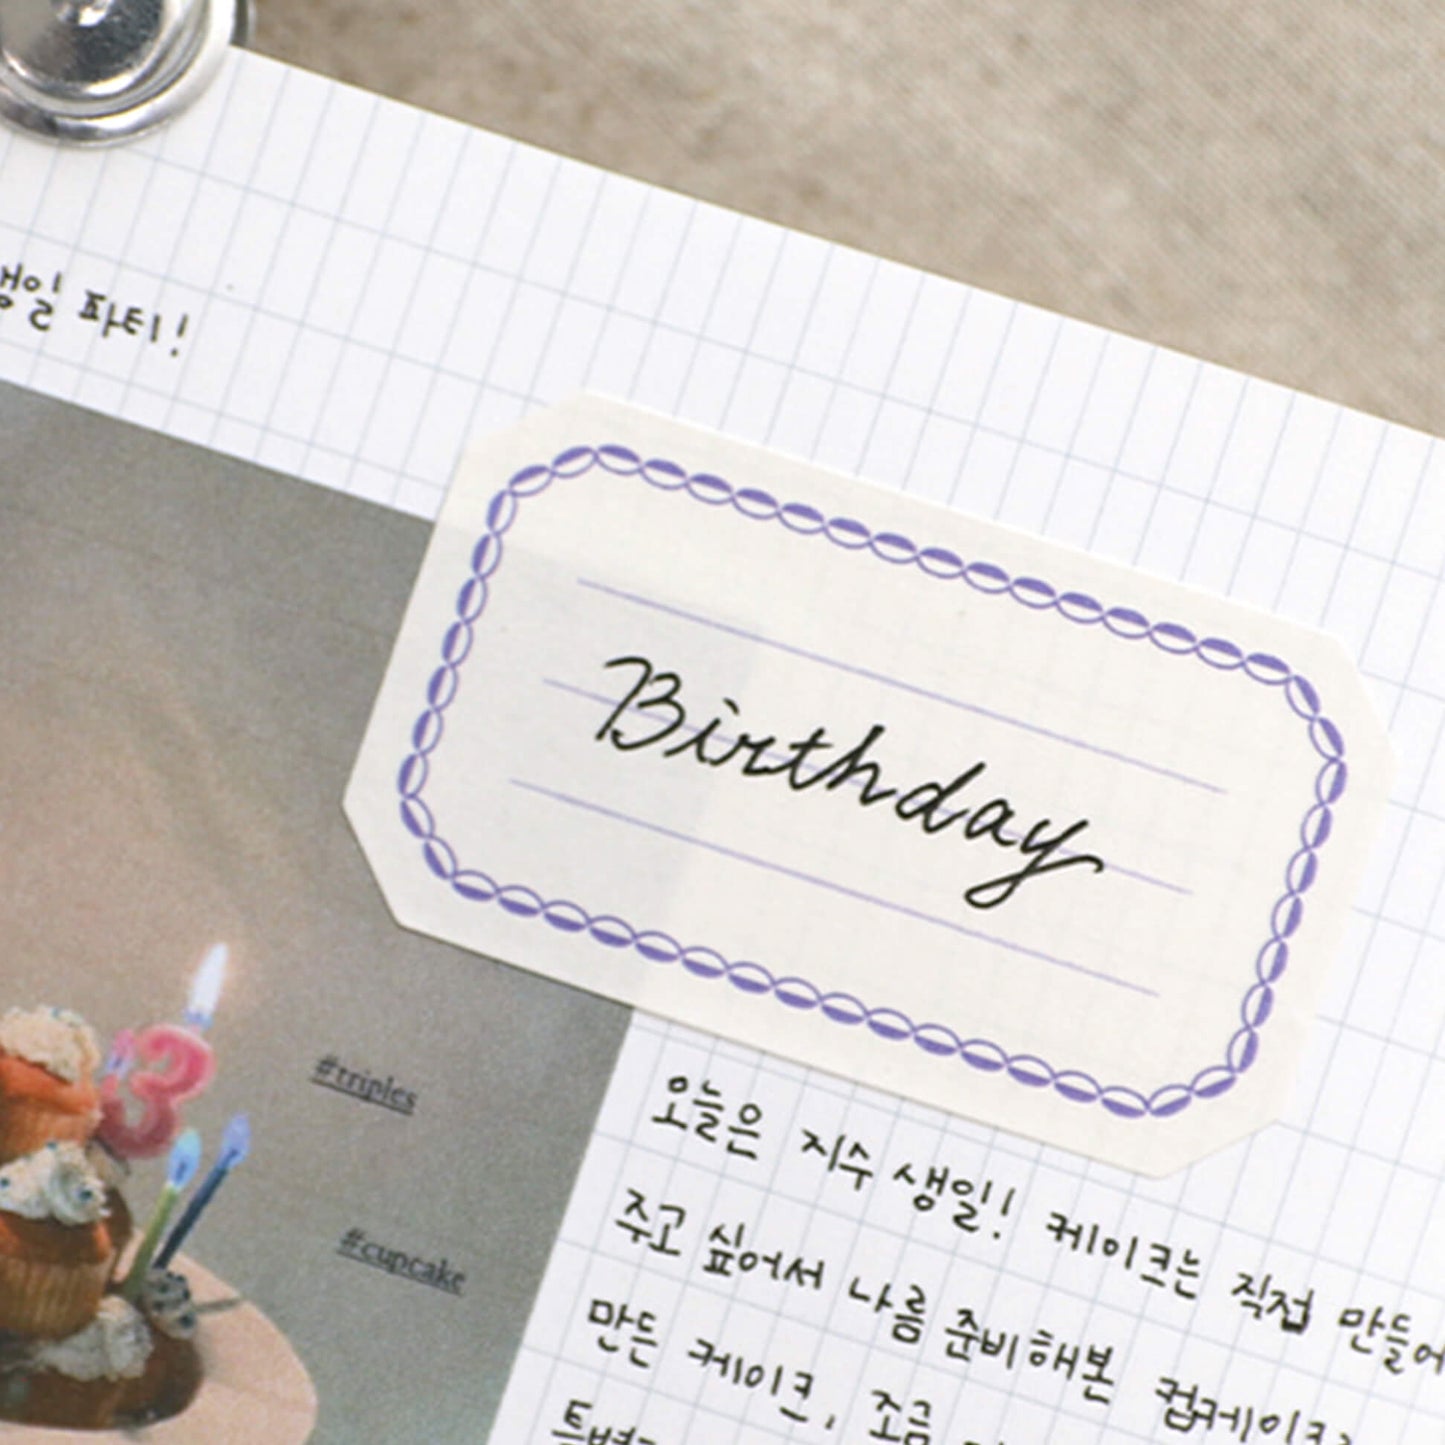 생일 파티!
Birthday
#triples
#cupcake
오늘은 지수 생일! 케이크는 직접 만들어
주고 싶어서 나름 준비해본 컵케이크로
만든 케이크, 조금